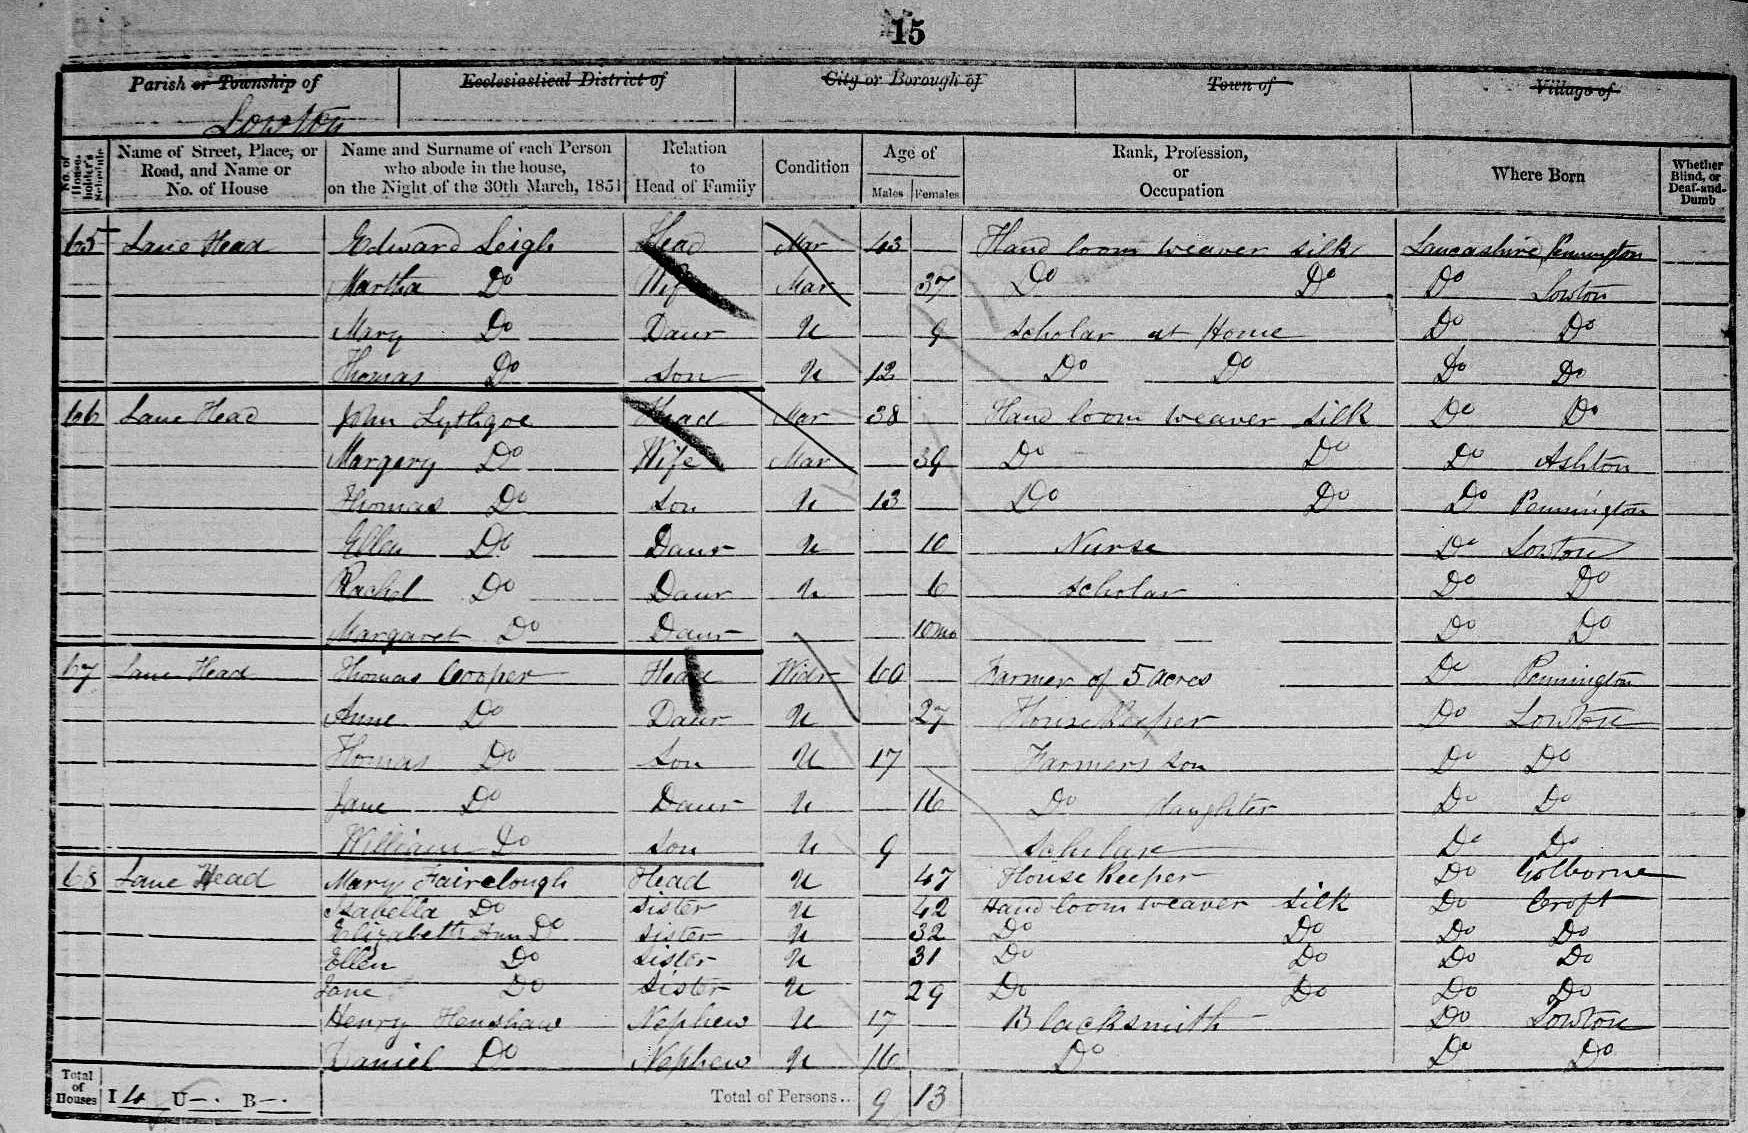 15
Parish or Township of Ecclesiastical District of City or Borough of Town of Village of
Lowton
No. of House-holder's Schedule Name of Street, Place, or Road, and Name or No. of House Name and Surname of each Person who abode in the house, on the Night of the 30th March, 1851 Relation to Head of Family Condition Age of Males Females Rank, Profession, or Occupation Where Born Whether Blind, or Deaf-and-Dumb
65 Lane Head Edward Leigh Head Mar 43 Hand loom weaver silk Lancashire Pennington
Martha Do Wife Mar 37 Do Do Do Lowton
Mary Do Daur U 9 Scholar at Home Do Do
Thomas Do Son U 12 Do Do Do Do
66 Lane Head John Lythgoe Head Mar 38 Hand loom weaver silk Do Do
Margery Do Wife Mar 39 Do Do Do Ashton
Thomas Do Son U 13 Do Do Do Pennington
Ellen Do Daur U 10 Nurse Do Lowton
Rachel Do Daur U 6 Scholar Do Do
Margaret Do Daur 10mo Do Do
67 Lane Head Thomas Cooper Head Widr 60 Farmer of 5 acres Do Pennington
Anne Do Daur U 27 House Keeper Do Lowton
Thomas Do Son U 17 Farmers son Do Do
Jane Do Daur U 16 Do daughter Do Do
William Do Son U 9 Scholar Do Do
68 Lane Head Mary Fairclough Head U 47 House Keeper Do Golborne
Isabella Do Sister U 42 Hand loom weaver silk Do Croft
Elizabeth Ann Do Sister U 32 Do Do Do Do
Ellen Do Sister U 31 Do Do Do Do
Jane Do Sister U 29 Do Do Do Do
Henry Henshaw Nephew U 17 Blacksmith Do Lowton
Daniel Do Nephew U 16 Do Do Do
Total of Houses I 4 U —. B —. Total of Persons.. 9 13